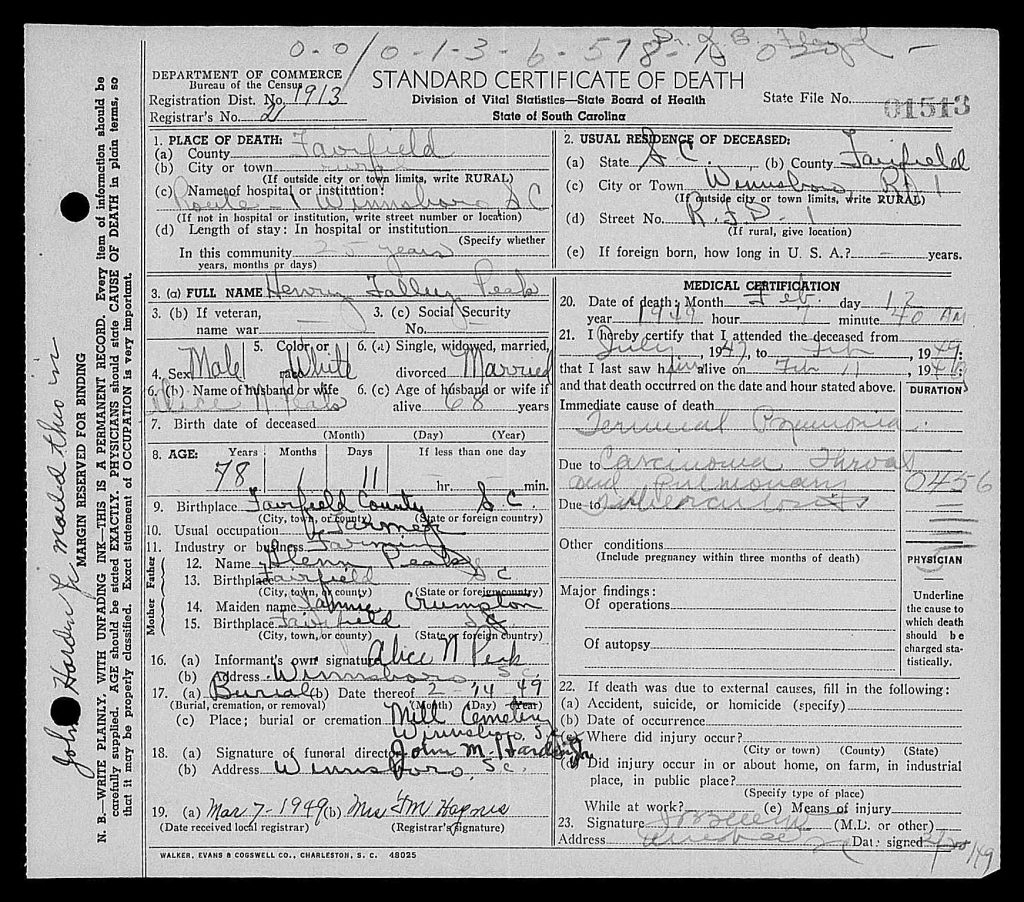 0-0/0-1-3-6-578-
DEPARTMENT OF COMMERCE
Bureau of the Census
STANDARD CERTIFICATE OF DEATH
Registration Dist. No. 1913
Division of Vital Statistics—State Board of Health
State File No. 01513
Registrar's No. 21
State of South Carolina
1. PLACE OF DEATH:
(a) County Fairfield
(b) City or town
(If outside city or town limits, write RURAL)
(c) Name of hospital or institution:
Route - 1 Winnsboro, S C
(If not in hospital or institution, write street number or location)
(d) Length of stay: In hospital or institution
(Specify whether
In this community 25 years
years, months or days)
2. USUAL RESIDENCE OF DECEASED:
(a) State S C. (b) County Fairfield
(c) City or Town Winnsboro, RFD 1
(If outside city or town limits, write RURAL)
(d) Street No. R.F.D - 1
(If rural, give location)
(e) If foreign born, how long in U. S. A.? – years.
3. (a) FULL NAME Henry Talley Peak
3. (b) If veteran, name war —
3. (c) Social Security No. —
4. Sex Male 5. Color or race White 6. (a) Single, widowed, married, divorced Married
6. (b) Name of husband or wife Alice N Peak
6. (c) Age of husband or wife if alive 68 years
7. Birth date of deceased
(Month) (Day) (Year)
8. AGE: Years Months Days If less than one day
78 1 11 hr. min.
9. Birthplace Fairfield County S C.
(City, town, or county) (State or foreign country)
10. Usual occupation Farmer
11. Industry or business Farming
Father
12. Name Glenn Peak
13. Birthplace Fairfield S C
(City, town, or county) (State or foreign country)
Mother
14. Maiden name Crumpton
15. Birthplace Fairfield S C
(City, town, or county) (State or foreign country)
16. (a) Informant's own signature Alice N Peak
(b) Address Winnsboro, S C.
17. (a) Burial (b) Date thereof 2 - 14 49
(Burial, cremation, or removal) (Month) (Day) (Year)
(c) Place; burial or cremation Mill Cemetery
Winnsboro, S.C.
18. (a) Signature of funeral director John M. Harden Jr
(b) Address Winnsboro, S.C.
19. (a) Mar 7-1949 (b) Mrs F M Haynes
(Date received local registrar) (Registrar's signature)
MEDICAL CERTIFICATION
20. Date of death: Month Feb. day 12
year 1949 hour 7 minute 40 AM
21. I hereby certify that I attended the deceased from
July, 1947, to Feb, 1949;
that I last saw him alive on Feb 11, 1949;
and that death occurred on the date and hour stated above.
DURATION
Immediate cause of death
Terminal Pneumonia
Due to Carcinoma Throat
and Pulmonary
Due to Tuberculosis
0456
Other conditions
(Include pregnancy within three months of death)
PHYSICIAN
Major findings:
Of operations
Of autopsy
Underline the cause to which death should be charged statistically.
22. If death was due to external causes, fill in the following:
(a) Accident, suicide, or homicide (specify)
(b) Date of occurrence
(c) Where did injury occur?
(City or town) (County) (State)
(d) Did injury occur in or about home, on farm, in industrial
place, in public place?
(Specify type of place)
While at work? (e) Means of injury
23. Signature (M.D. or other)
Address Date signed
WALKER, EVANS & COGSWELL CO., CHARLESTON, S. C. 48025
John Harden Jr mailed this in
MARGIN RESERVED FOR BINDING
N. B.—WRITE PLAINLY, WITH UNFADING INK—THIS IS A PERMANENT RECORD. Every item of information should be
carefully supplied. AGE should be stated EXACTLY. PHYSICIANS should state CAUSE OF DEATH in plain terms, so
that it may be properly classified. Exact statement of OCCUPATION is very important.